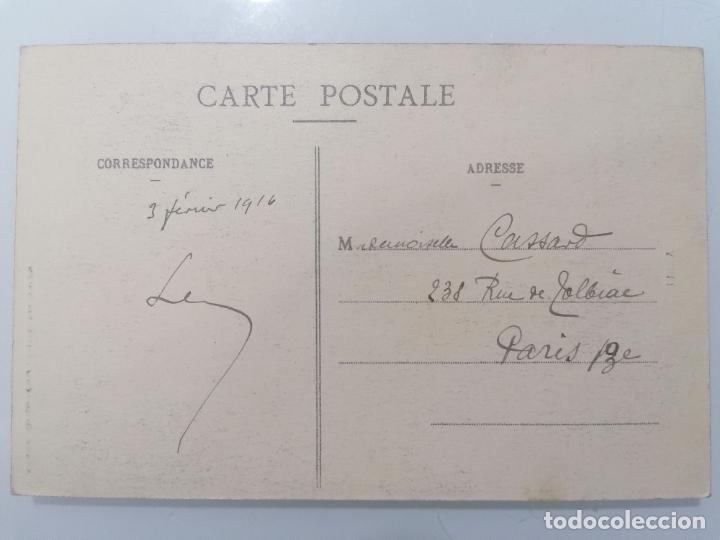 CARTE POSTALE
CORRESPONDANCE
ADRESSE
3 février 1916
Mademoiselle Cassard
238 Rue de Tolbiac
Paris
todocoleccion.net